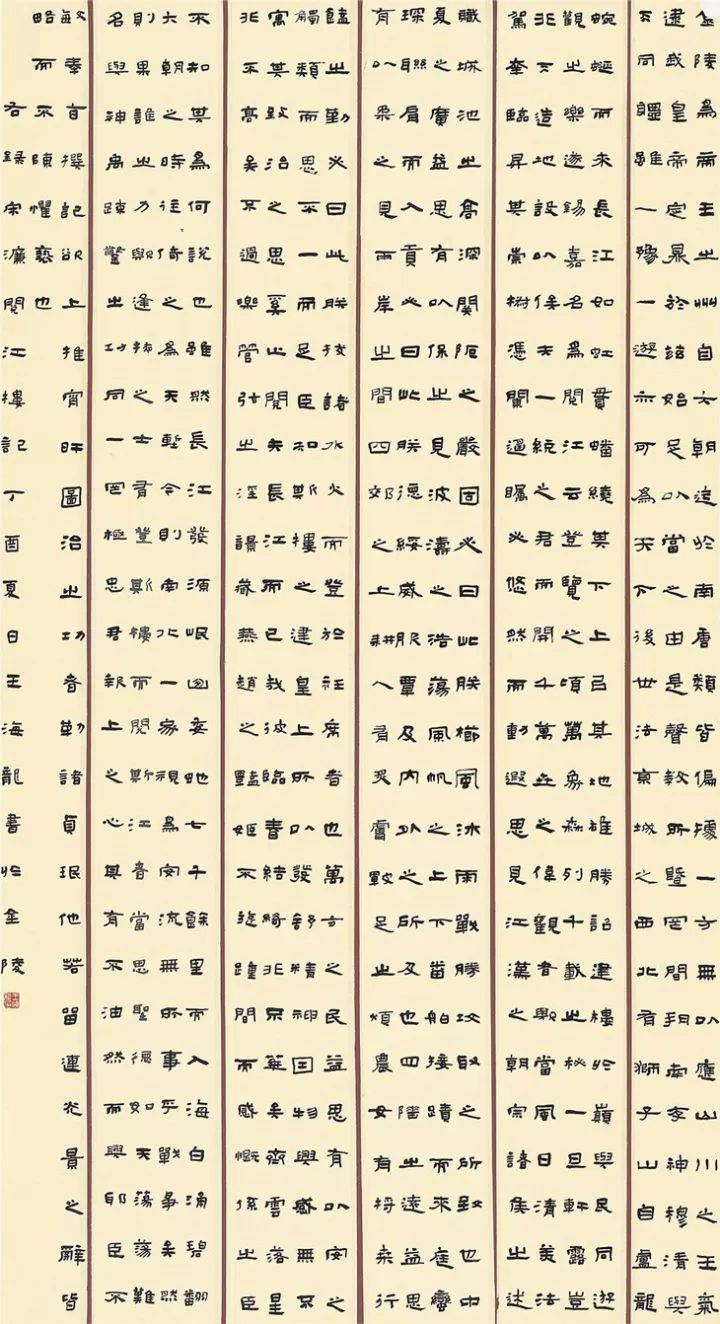 金陵為帝王之州自六朝迄於南唐類皆偏據一方無以應山川之王氣
逮我皇帝定鼎於茲始足以當之由是聲教所暨罔間朔南存神穆清與
天同體雖一豫一遊亦可為天下後世法京城之西北有獅子山自盧龍
蜿蜒而來長江如虹貫蟠繞其下上以其地雄勝詔建樓於巔與民同遊
觀之樂遂錫嘉名為閱江云登覽之頃萬象森列千載之秘一旦軒露豈
非天造地設以俟夫一統之君而開千萬世之偉觀者歟當風日清美法
駕幸臨昇其崇椒憑闌遙矚必悠然而動遐思見江漢之朝宗諸侯之述
職城池之高深關阨之嚴固必曰此朕櫛風沐雨戰勝攻取之所致也中
夏之廣益思有以保之見波濤之浩蕩風帆之上下番舶接蹟而來庭蠻
琛聯肩而入貢必曰此朕德綏威服覃及內外之所及也四陲之遠益思
有以柔之見兩岸之間四郊之上耕人有炙膚皸足之煩農女有捋桑行
饁之勤必曰此朕拔諸水火而登於衽席者也萬方之民益思有以安之
觸類而思不一而足臣知斯樓之建皇上所以發舒精神因物興感無不
寓其致治之思奚止閱夫長江而已哉彼臨春結綺非不華矣齊雲落星
非不高矣不過樂管弦之淫響藏燕趙之豔姬不旋踵間而感慨係之臣
不知其為何說也雖然長江發源岷山委蛇七千餘里而入海白湧碧翻
六朝之時往倚之為天塹今則南北一家視為安流無所事乎戰爭矣然
則果誰之力歟逢掖之士有登斯樓而閱斯江者當思聖德如天蕩蕩難
名與神禹疏鑿之功同一罔極忠君報上之心其有不油然而興耶臣不
敏奉旨撰記欲上推宵旰圖治之功者勒諸貞珉他若留連光景之辭皆
略而不陳懼褻也
右錄宋濂閱江樓記丁酉夏日王海龍書於金陵